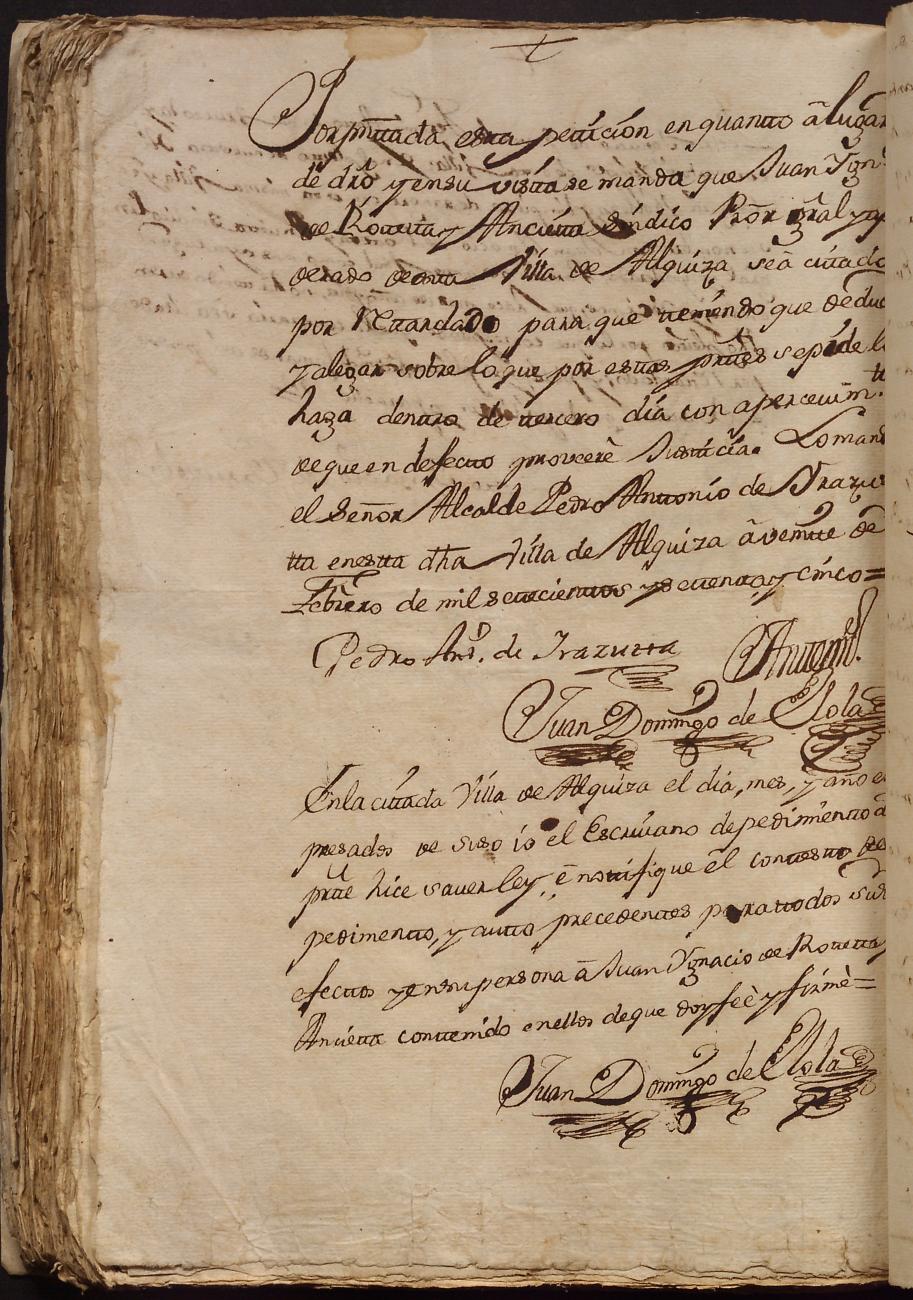 +
Por prnttada estta petticion en quantto â lugar
de drô y en su vistta se manda que Juan Ygn.
de Rovetta y Ancietta Sindico Prôr grãl y
derado de estta Villa de Alquiza seâ cittado
por Rettardado para que tteniendo que deduc
y alegar sobre lo que por esttas prttes se pide lo
haga dentro de ttercero dia con apercevim.tto
de que en defectto proveerè Justticia. Lo mand
el Señor Alcalde Pedro Anttonio de Yrazu
tta en estta dha Villa de Alquiza â veintte de
Febrero de mil settecienttos y settentta y cinco=
Pedro Antº. de Irazusta Antemi.
Juan Domingo de Elola
En la cittada Villa de Alquiza el dia, mes, y año e
presados de suso io el Escrivano de pedimientto d
prtte hice saver ley, ê nottifique êl conttestto de
pedimentto, y autto precedenttes para ttodos sus
efecttos y en su persona â Juan Ygnacio de Rovetta y
Anciettta conttenido en ellos de que doy feè y firmè=
Juan Domingo de Elola